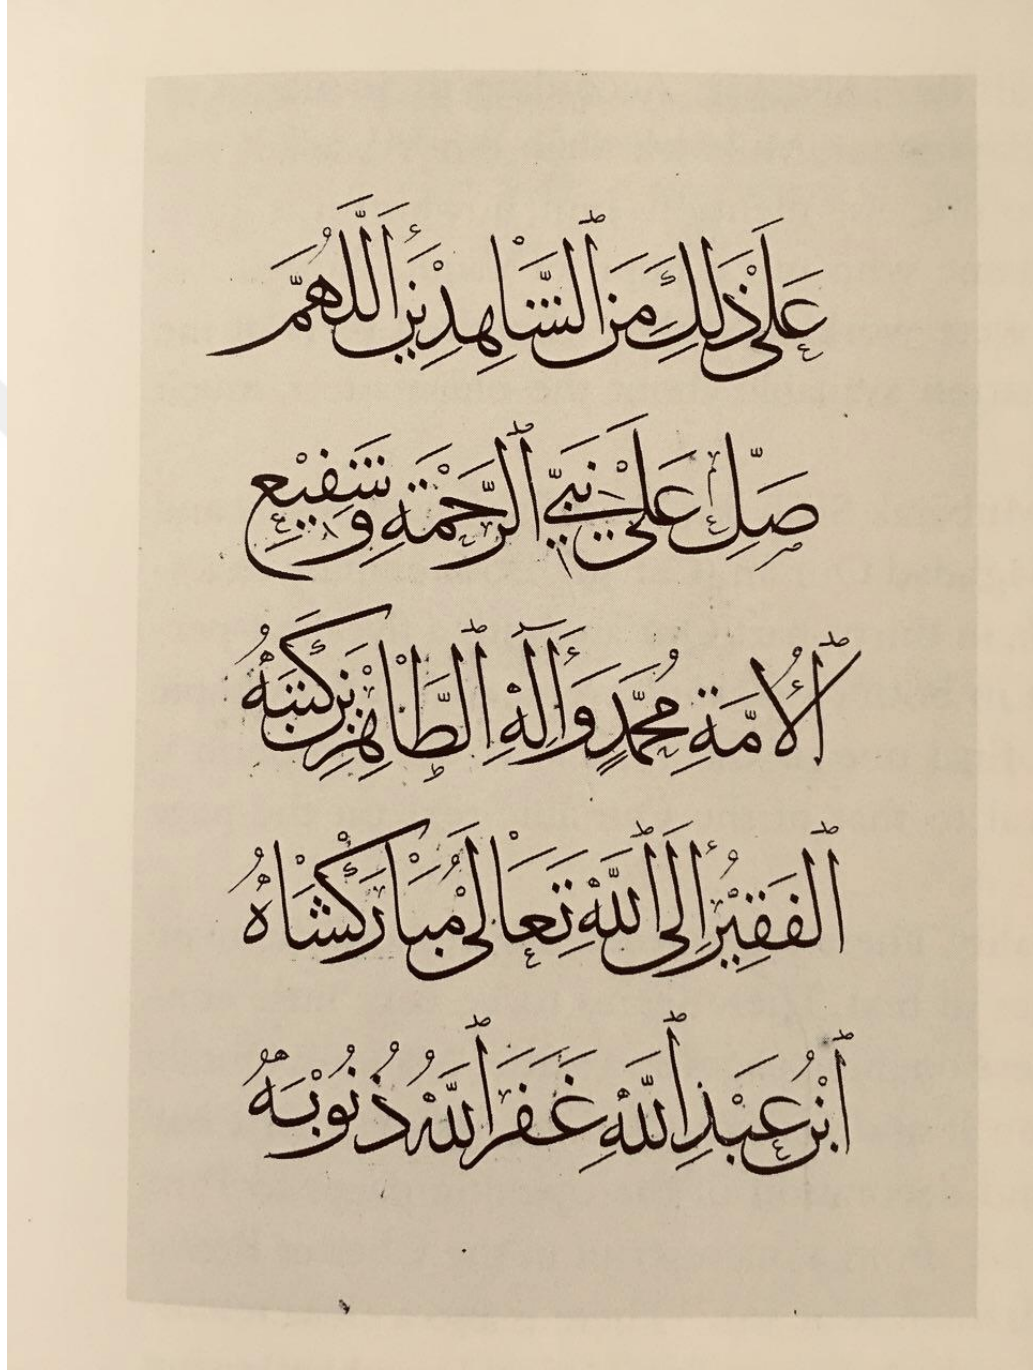 عَلَىٰ ذَٰلِكَ مِنَ ٱلشَّاهِدِيْنَ أَللَّهُمَّ
صَلِّ عَلَىٰ نَبِيِّ ٱلرَّحْمَةِ وَشَفِيْعِ
ٱلْأُمَّةِ مُحَمَّدٍ وَأٓلِهِ ٱلطَّاهِرِيْنَ كَتَبَهُ
ٱلفَقِيْرُ إِلَى ٱللَّهِ تَعَالَىٰ مُبَارَكْشَاهُ
ٱبْنُ عَبْدِ ٱللَّهِ غَفَرَ ٱللَّهُ ذُنُوْبَهُ